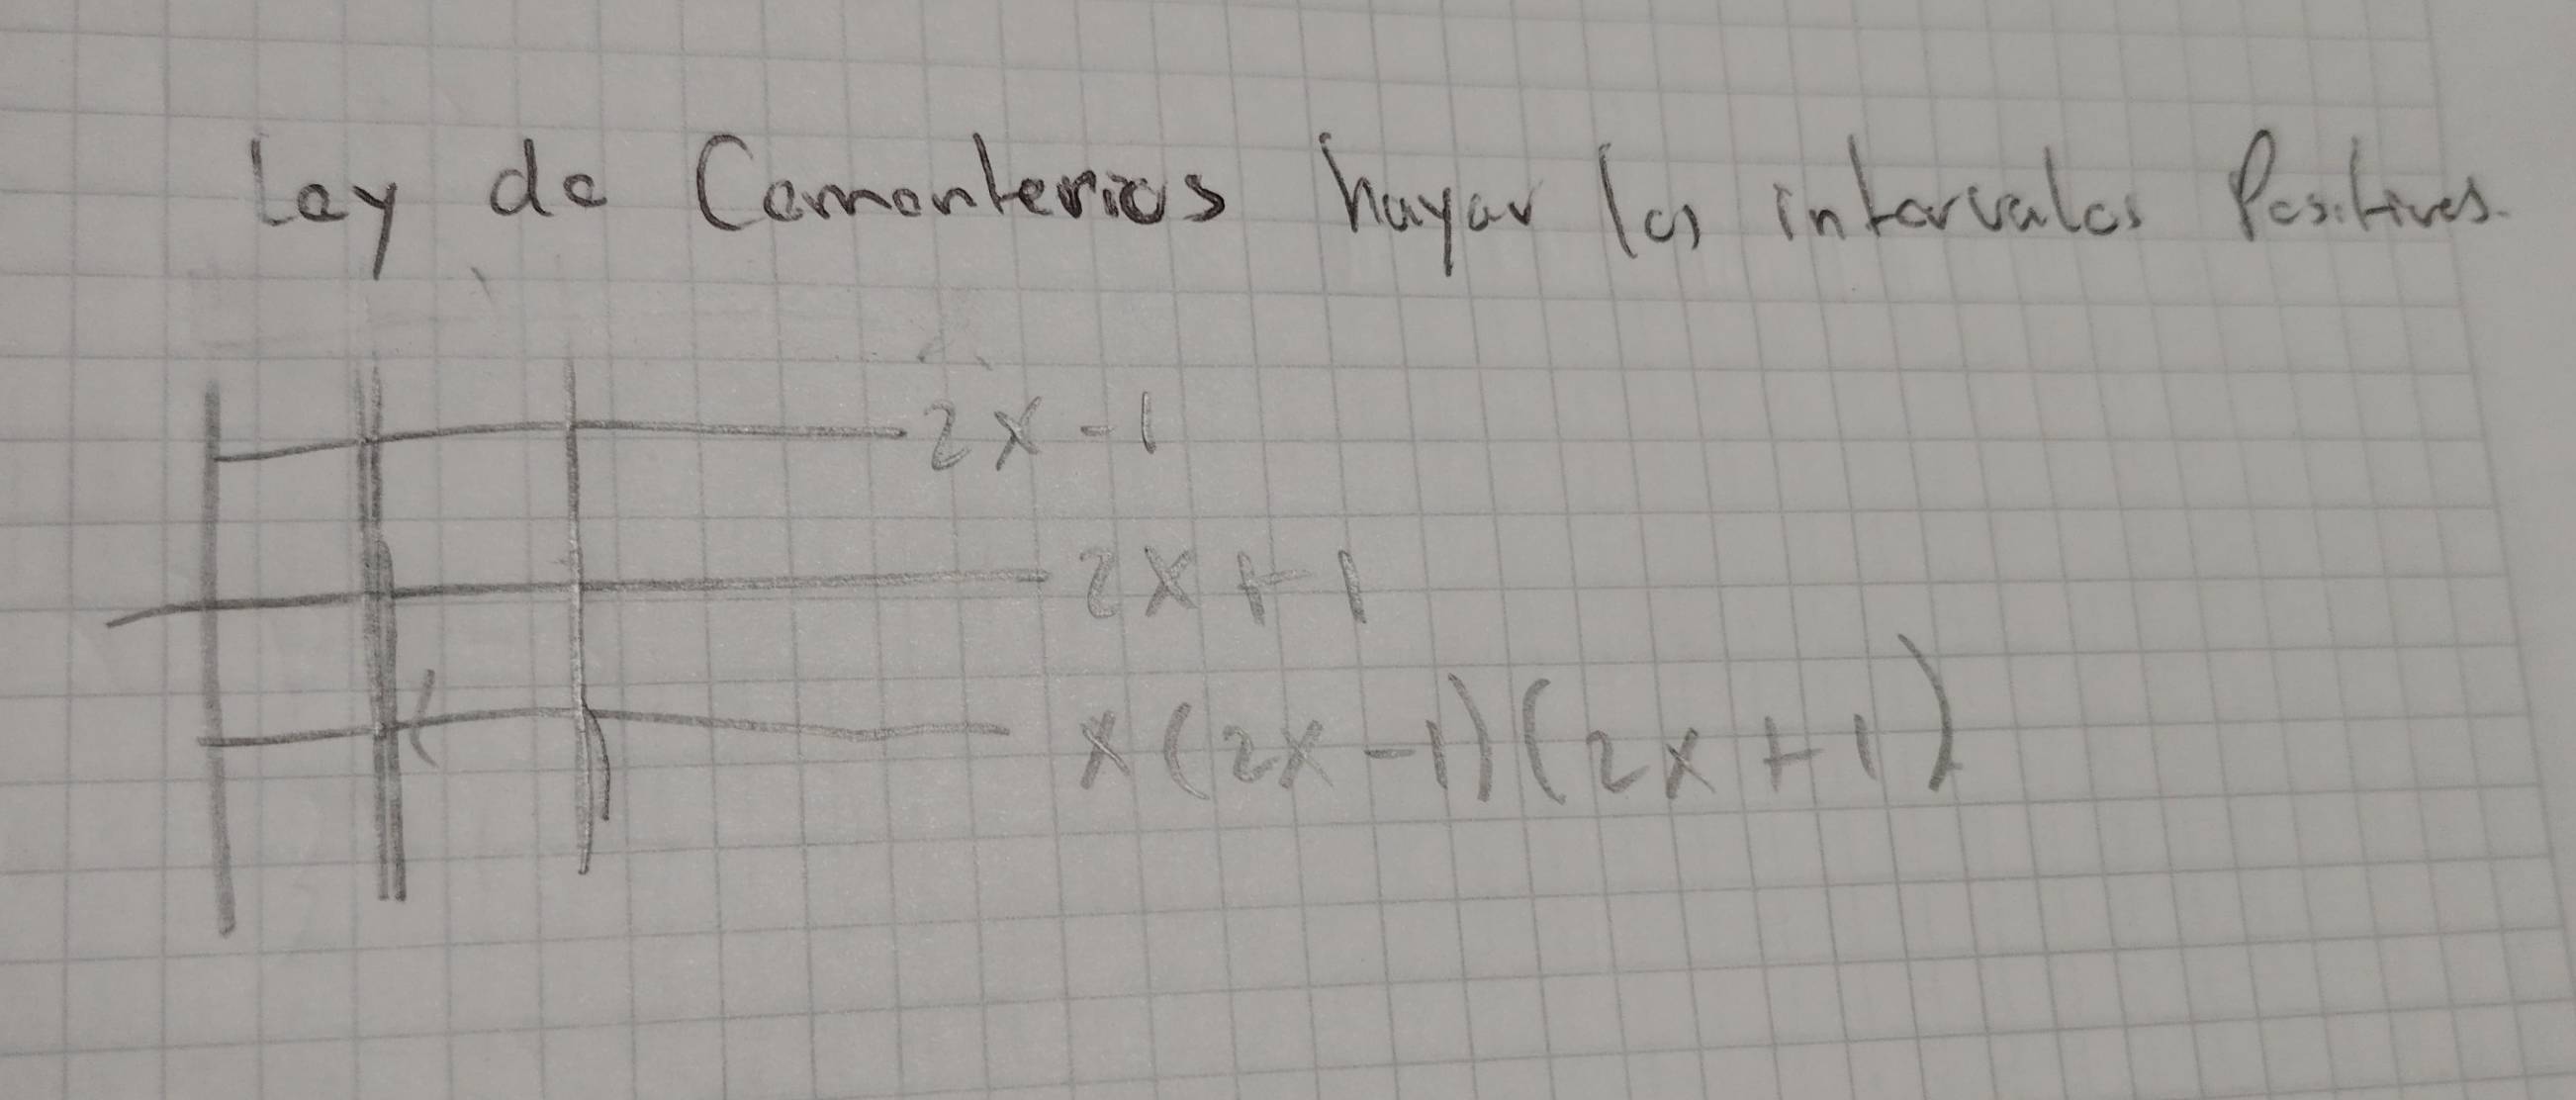 Ley de Cementerios hayar los intervalos Positivos.
2x - 1
2x + 1
x(2x-1)(2x+1)